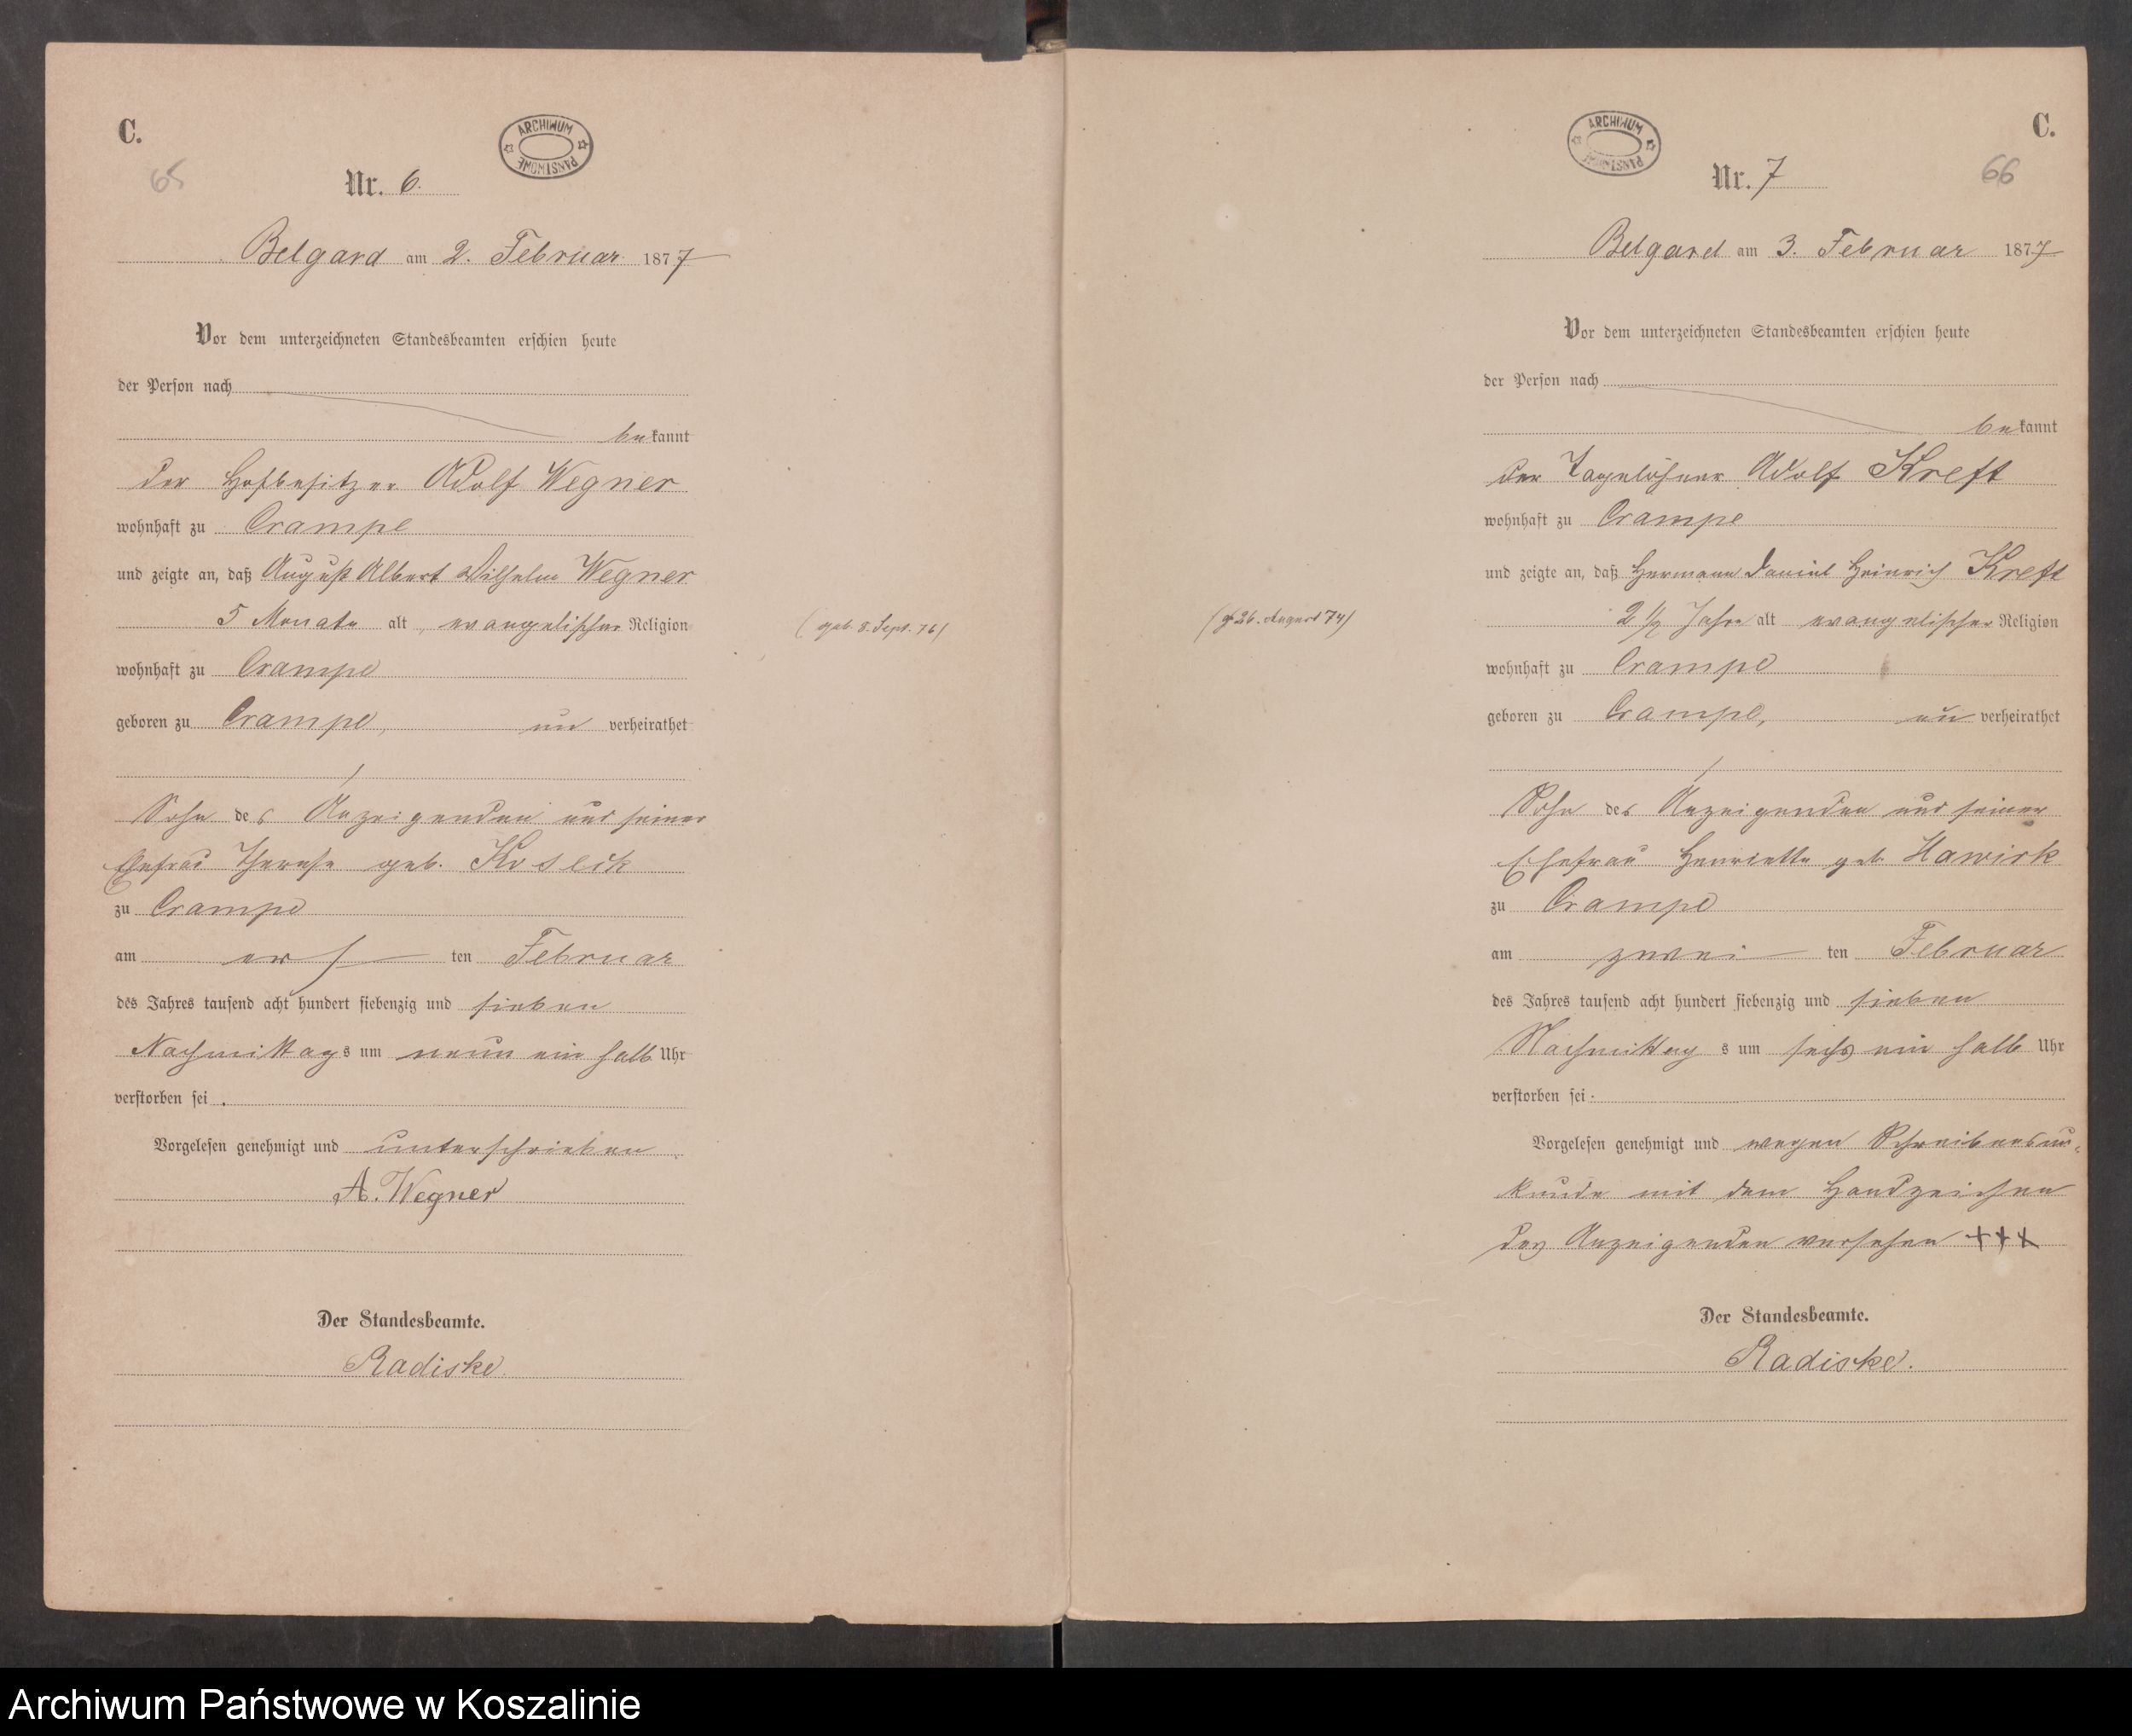 C.
65
ARCHIWUM PAŃSTWOWE
Nr. 6.
Belgard am 2. Februar 1877
Vor dem unterzeichneten Standesbeamten erschien heute
der Person nach
bekannt
der Hofbesitzer Adolf Wegner
wohnhaft zu Crampe
und zeigte an, daß August Albert Wilhelm Wegner
5 Monate alt, evangelischer Religion
(geb. 8. Sept. 76)
wohnhaft zu Crampe
geboren zu Crampe, un verheirathet
Sohn des Anzeigenden und seiner
Ehefrau Therese geb. Koseck
zu Crampe
am ers ten Februar
des Jahres tausend acht hundert siebenzig und sieben
Nachmittags um neun ein halb Uhr
verstorben sei.
Vorgelesen genehmigt und unterschrieben
A. Wegner
Der Standesbeamte.
Radiske.
C.
66
ARCHIWUM PAŃSTWOWE
Nr. 7
Belgard am 3. Februar 1877
Vor dem unterzeichneten Standesbeamten erschien heute
der Person nach
bekannt
der Tagelöhner Adolf Kreft
wohnhaft zu Crampe
und zeigte an, daß Hermann Daniel Heinrich Kreft
(g 26. August 74)
2 1/2 Jahre alt evangelischer Religion
wohnhaft zu Crampe
geboren zu Crampe, un verheirathet
Sohn des Anzeigenden und seiner
Ehefrau Henriette geb. Hawirk
zu Crampe
am zwei ten Februar
des Jahres tausend acht hundert siebenzig und sieben
Nachmittag s um sechs ein halb Uhr
verstorben sei.
Vorgelesen genehmigt und wegen Schreibensun-
kunde mit dem Handzeichen
des Anzeigenden versehen +++
Der Standesbeamte.
Radiske.
Archiwum Państwowe w Koszalinie